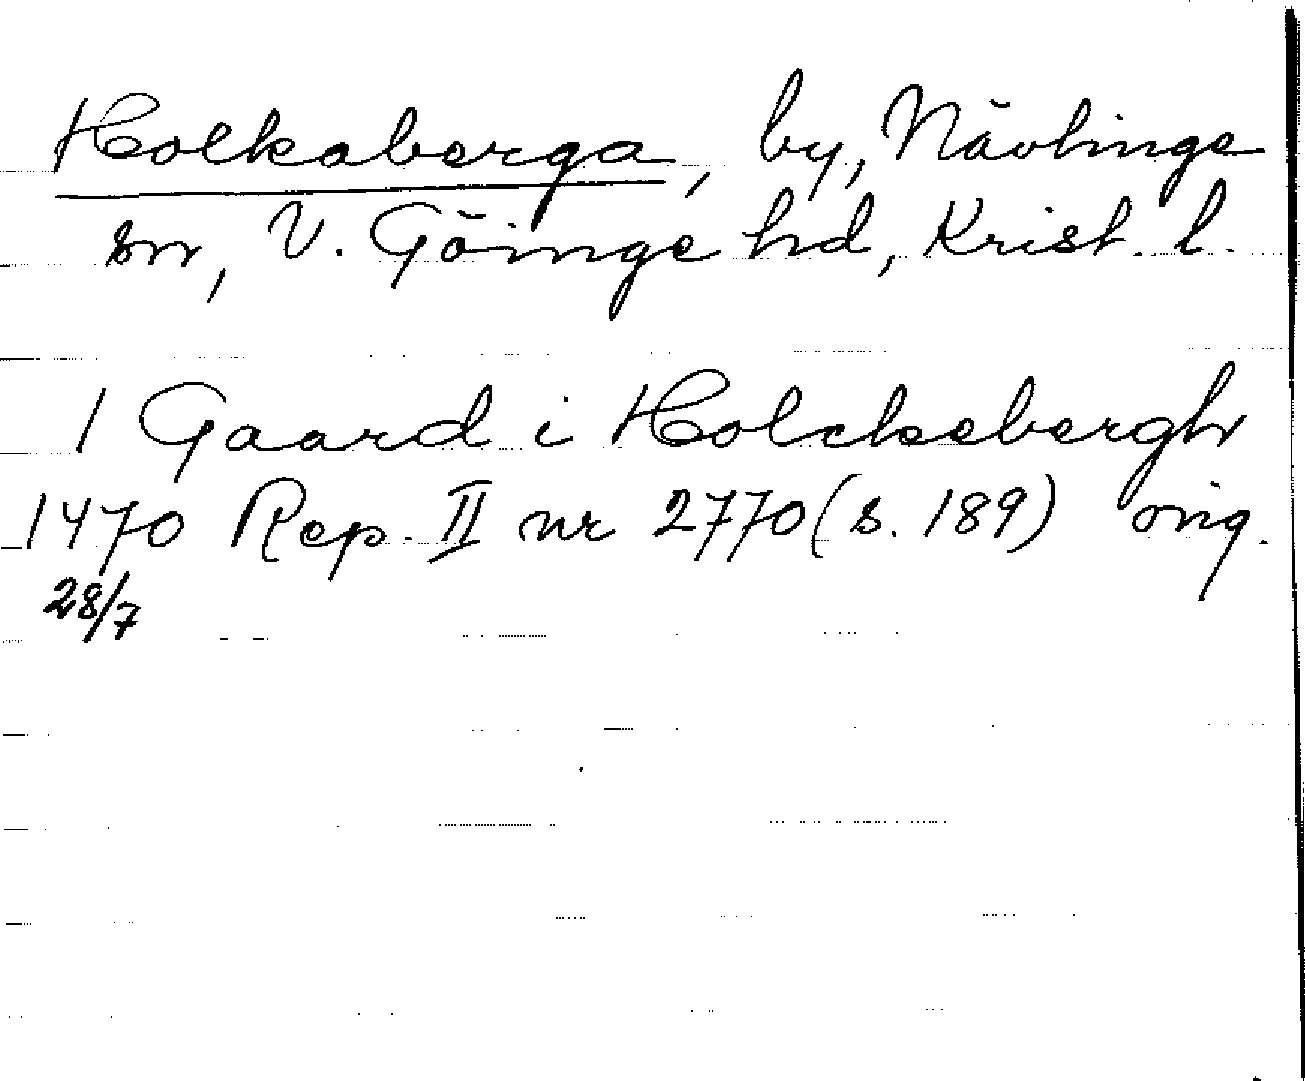 Holkaberga, by, Nävlinge
sn, V. Göinge hd, Krist. l.
1 Gaard i Holckebergh
1470 Rep. II nr 2770 (s. 189) orig.
28/7